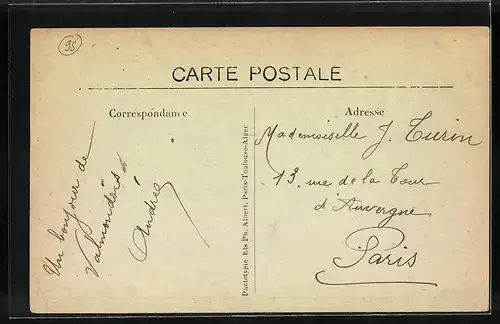 95
CARTE POSTALE
Correspondance
Adresse
Un bonjour de
Valmondois
Andrée
Phototypie Éts Ph. Albert, Paris-Toulouse-Alger
Mademoiselle J. Turin
13, rue de la Tour
d'Auvergne
Paris